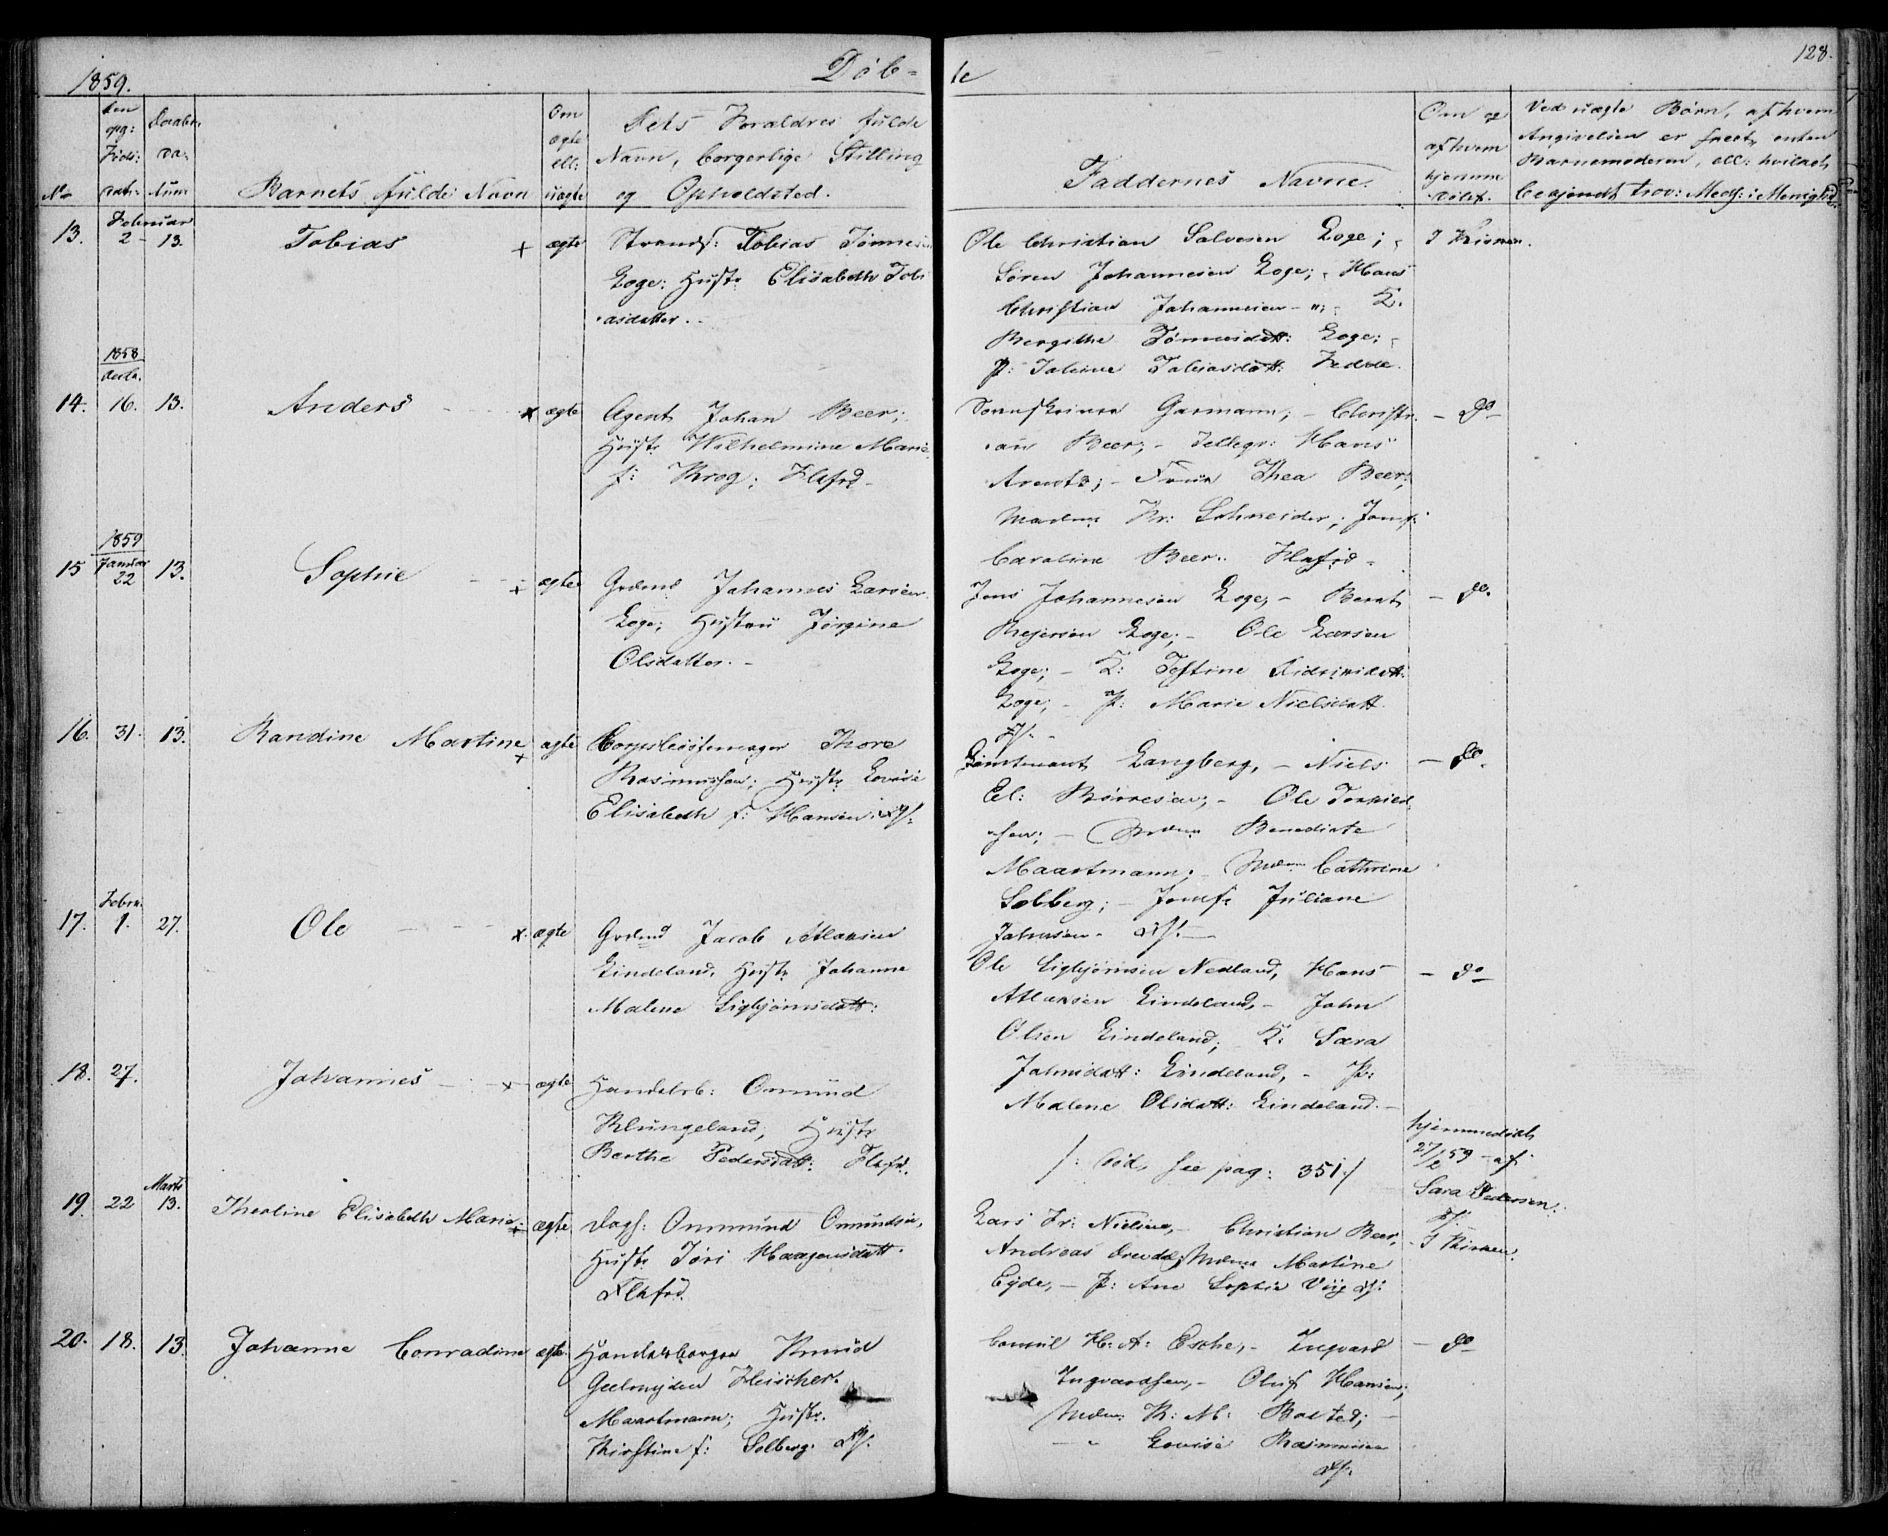 1859. Døb-
te 128.
No
den opg: Føds: dat:
Daabs da- tum
Barnets fulde Navn
Om ægte ell: uægte
Dets Forældres fulde
Navn, borgerlige Stilling
og Opholdsted.
Faddernes Navne.
Om og af hvem hjemme døbt.
Ved uægte Børn, af hvem
Angivelsen er skeet, enten
Barnemoderen, ell: hvilket
begjendt trov: Medl: i Menighd
Februar
13. 2 - 13. Tobias + ægte Strands: Tobias Tønnesen
Loge: Hustr Elisabeth Tobi
asdatter.
Ole Christian Salvesen Loge; I Kirken.
Søren Johannesen Loge; Hans
Christian Johannesen - "; K.
Bergithe Tønnesdatt: Loge;
P: Taline Tobiasdatt: Fedde.
1858
Decbr.
14. 16. 13. Anders x ægte Agent Johan Beer;
Hustr Wilhelmine Marie
f: Krog; Flkfrd
Sorenskriver Garmann; - Christi- - do -
an Beer; - Tellegr: Hans
Arentz; - Frue Thea Beer;
Madm Kr: Schneider; Jomf:
Caroline Beer. Flkfrd -
1859
Januar
15 22 13. Sophie + ægte Grdmd Johannes Larsen
Loge; Hustru Jørgine
Olsdatter. -
Jens Johannesen Loge, - Berat - do.
Rejersen Loge; - Ole Larsen
Loge; - K: Tostine Didriksdatt:
Loge; - P: Marie Nielsdatt
Ff. -
16. 31. 13. Randine Martine + ægte Corpsbøssemager Thore
Rasmussen; Hustr Lovise
Elisabeth f: Hansen. Ff.
Lieutenant Langberg, - Niels - do.
El: Børresen; - Ole Torkild
sen; - Mdm Benedicte
Maartmann; - Mdm Cathrine
Solberg; - Jomfr Juliane
Johnsen - Ff. -
Febru.
17. 1. 27. Ole x. ægte Grdmd Jacob Atlaksen
Lindeland, Hustr Johanne
Malene Sigbjørnsdatt:
Ole Sigbjørnsen Nedland, Hans - do -
Atlaksen Lindeland, - John
Olsen Lindeland; K: Sara
Johnsdatt: Lindeland, - P:
Malene Olsdatt: Lindeland. -
18. 27. Johannes x ægte Handelsb: Omund
Klungeland, Hustr
Berthe Pedersdatt: Flkfd.
/: død, see pag: 351:/
hjemmedøbt
27/2 59 af
Sara Pedersen.
Ff.
Marts
19. 22 13. Theoline Elisabeth Marie + ægte Dags: Ommund Omundsen,
Hustr Tøri Haagensdatt.
Flkfrd
Lars Fr: Nielsen, - Christian Beer, - I Kirken.
Andreas Mdm Martine
Eyde, - P: Ane Sophie Viig Ff:
20. 18. 13. Johanne Conradine ægte Handelsborger Knud
Geelmyden Fleischer
Maartmann; Hustr.
Kirstine f: Solberg. Ff.
Consul H: A: Esche, - Ingvard - do -
Ingvardsen, - Oluf Hansen;
Mdm: K: M: Balted; -
- " Lovise Rasmussen
Ff.